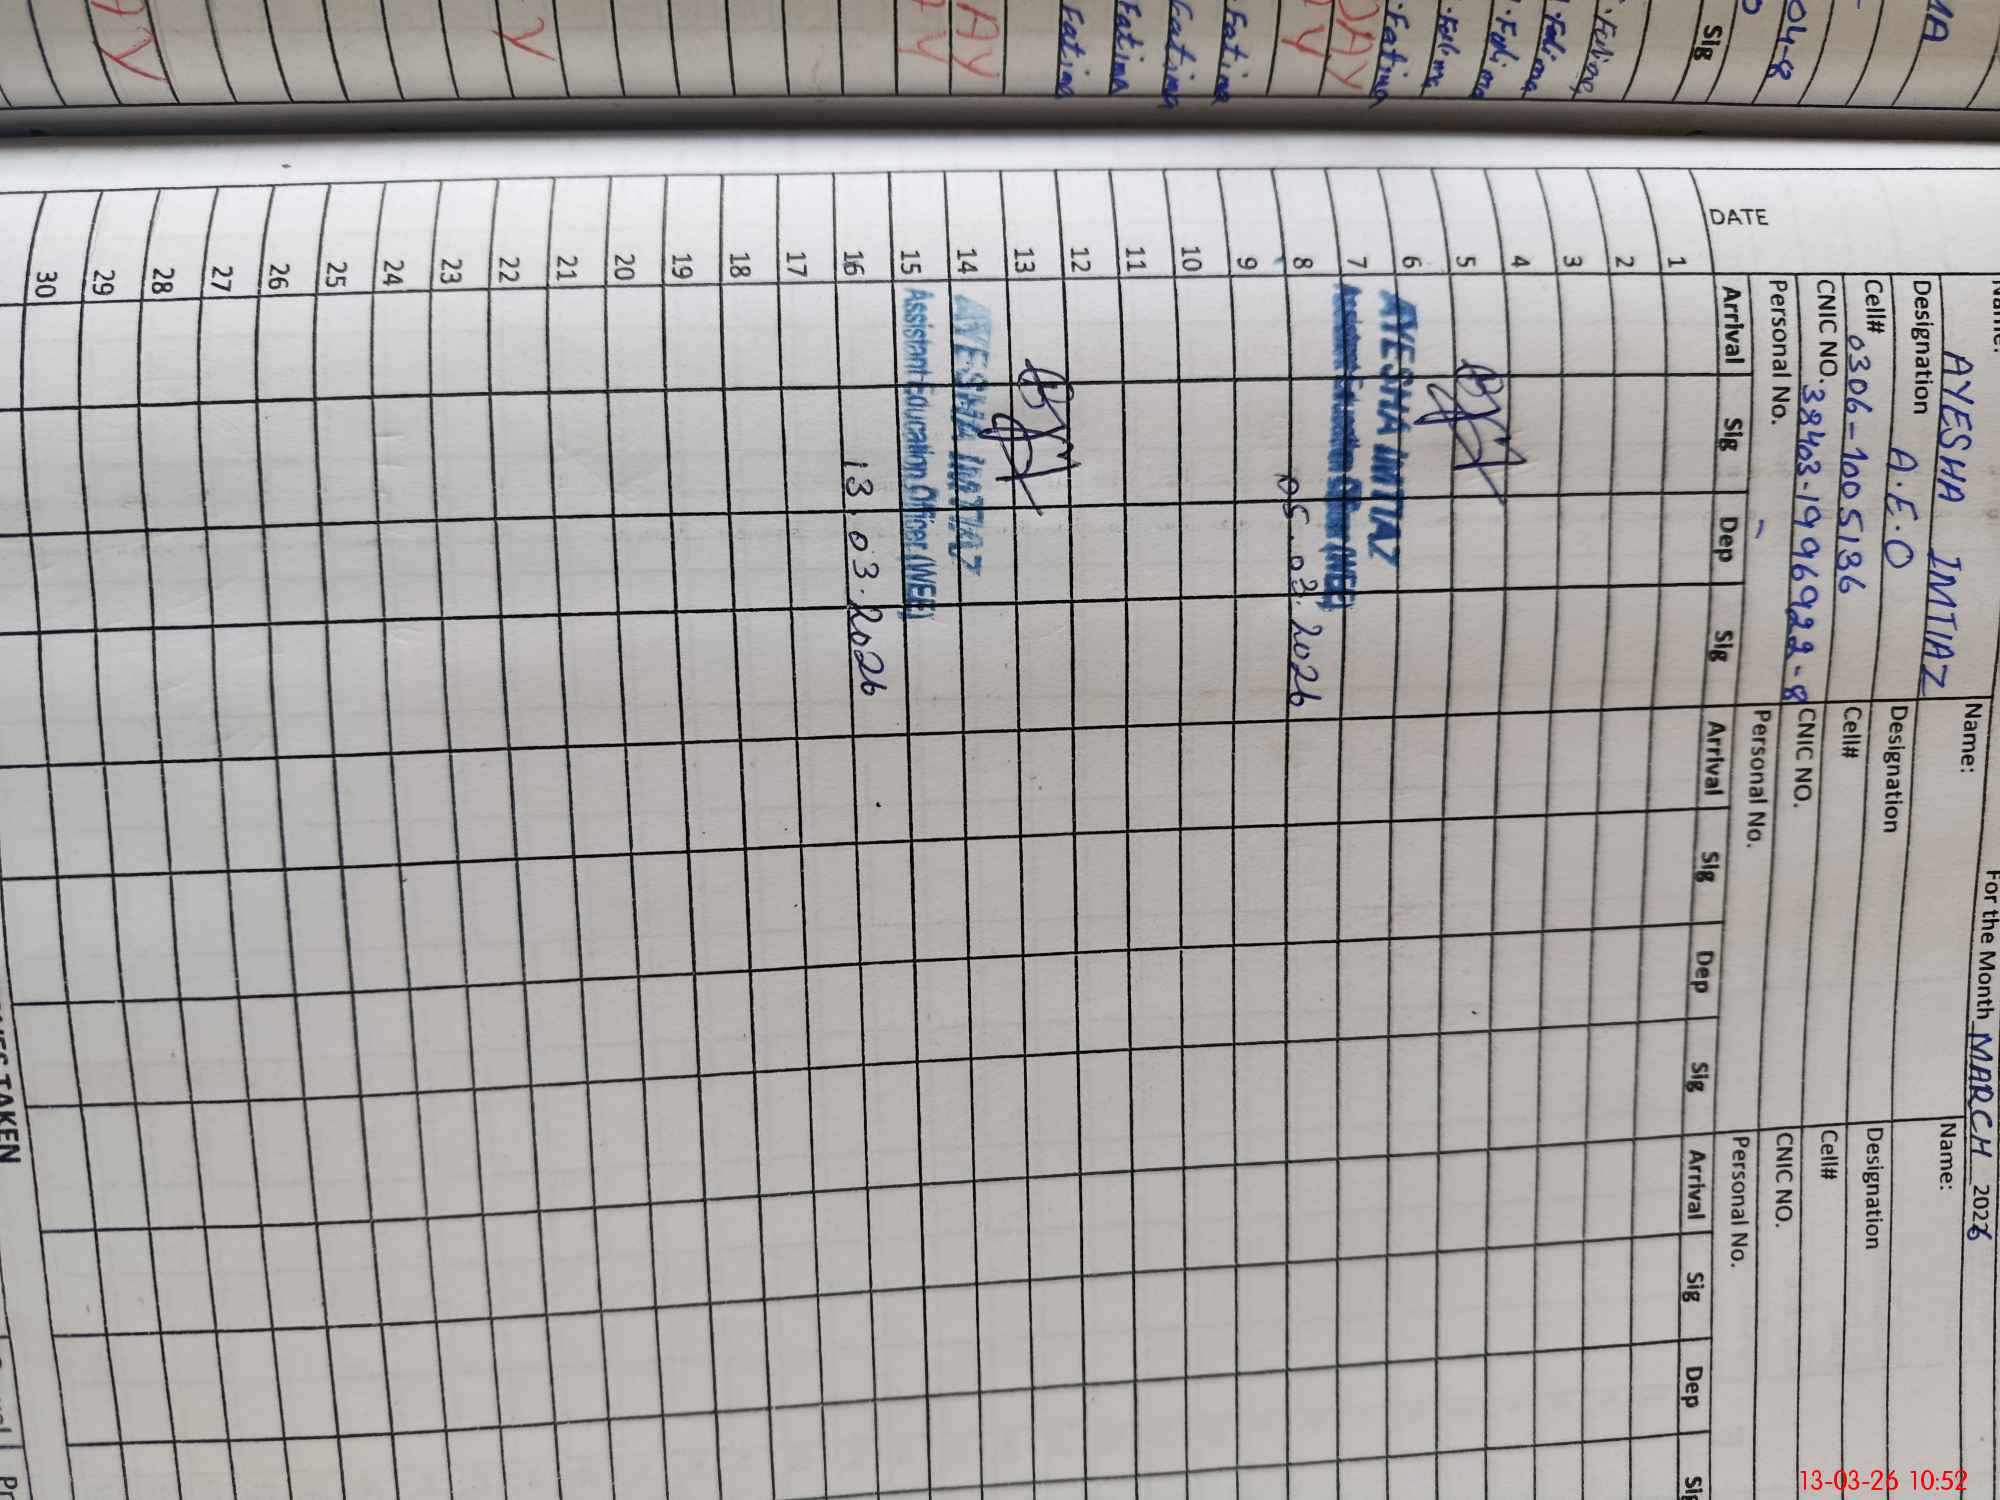 For the Month MARCH 2026
Name: AYESHA IMTIAZ
Designation A.E.O
Cell# 0306-1005136
CNIC NO. 38403-1996922-8
Personal No. -
Name:
Designation
Cell#
CNIC NO.
Personal No.
Name:
Designation
Cell#
CNIC NO.
Personal No.
DATE Arrival Sig Dep Sig Arrival Sig Dep Sig Arrival Sig Dep Sig
1
2
3
4
5
6 AYESHA IMTIAZ
7 Assistant Education Officer (WEE)
8 05.03.2026
9
10
11
12
13
14 AYESHA IMTIAZ
15 Assistant Education Officer (WEE)
16 13.03.2026
17
18
19
20
21
22
23
24
25
26
27
28
29
30
TAKEN
MA
04-8
Sig
Fatima
Fatima
Fatima
Fatima
Fatima
13-03-26 10:52